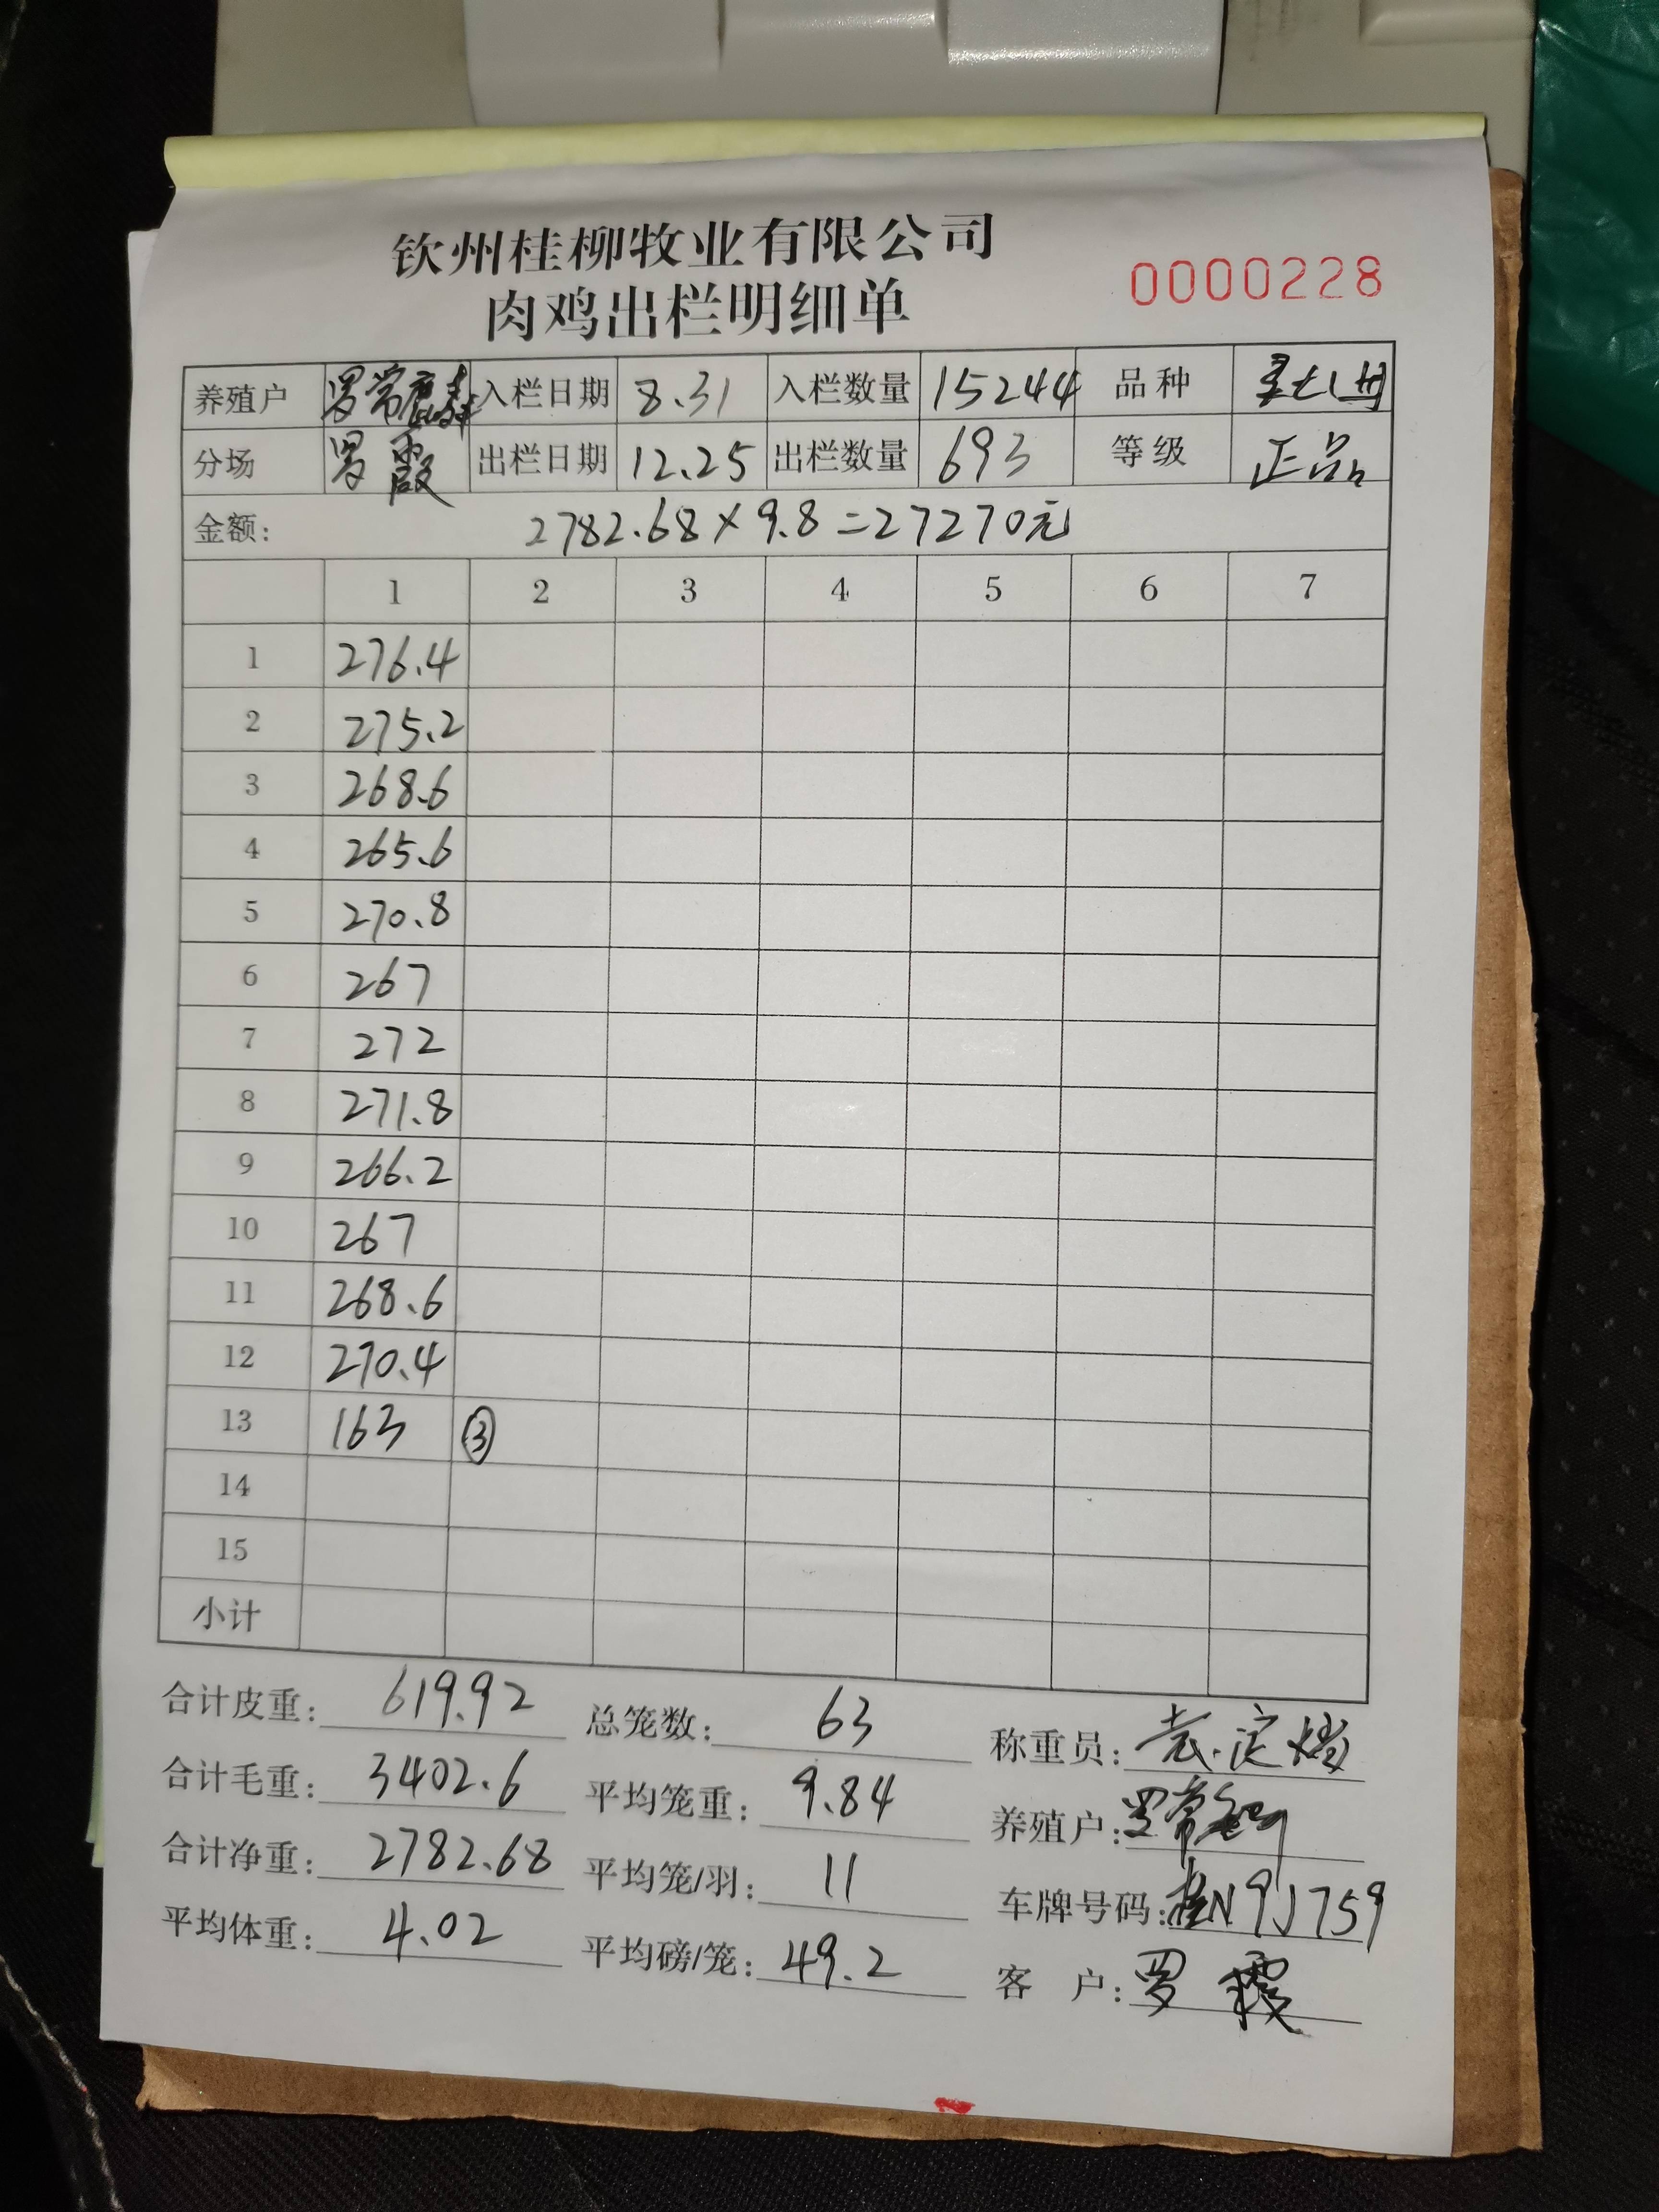 钦州桂柳牧业有限公司
肉鸡出栏明细单
0000228
养殖户 罗常 入栏日期 8.31 入栏数量 15244 品种
分场 罗霞 出栏日期 12.25 出栏数量 693 等级 正品
金额: 2782.68×9.8=27270元
1 2 3 4 5 6 7
1 276.4
2 275.2
3 268.6
4 265.6
5 270.8
6 267
7 272
8 271.8
9 266.2
10 267
11 268.6
12 270.4
13 163 ③
14
15
小计
合计皮重: 619.92 总笼数: 63 称重员:
合计毛重: 3402.6 平均笼重: 9.84 养殖户: 罗常
合计净重: 2782.68 平均笼/羽: 11 车牌号码: 桂N9J759
平均体重: 4.02 平均磅/笼: 49.2 客户: 罗霞